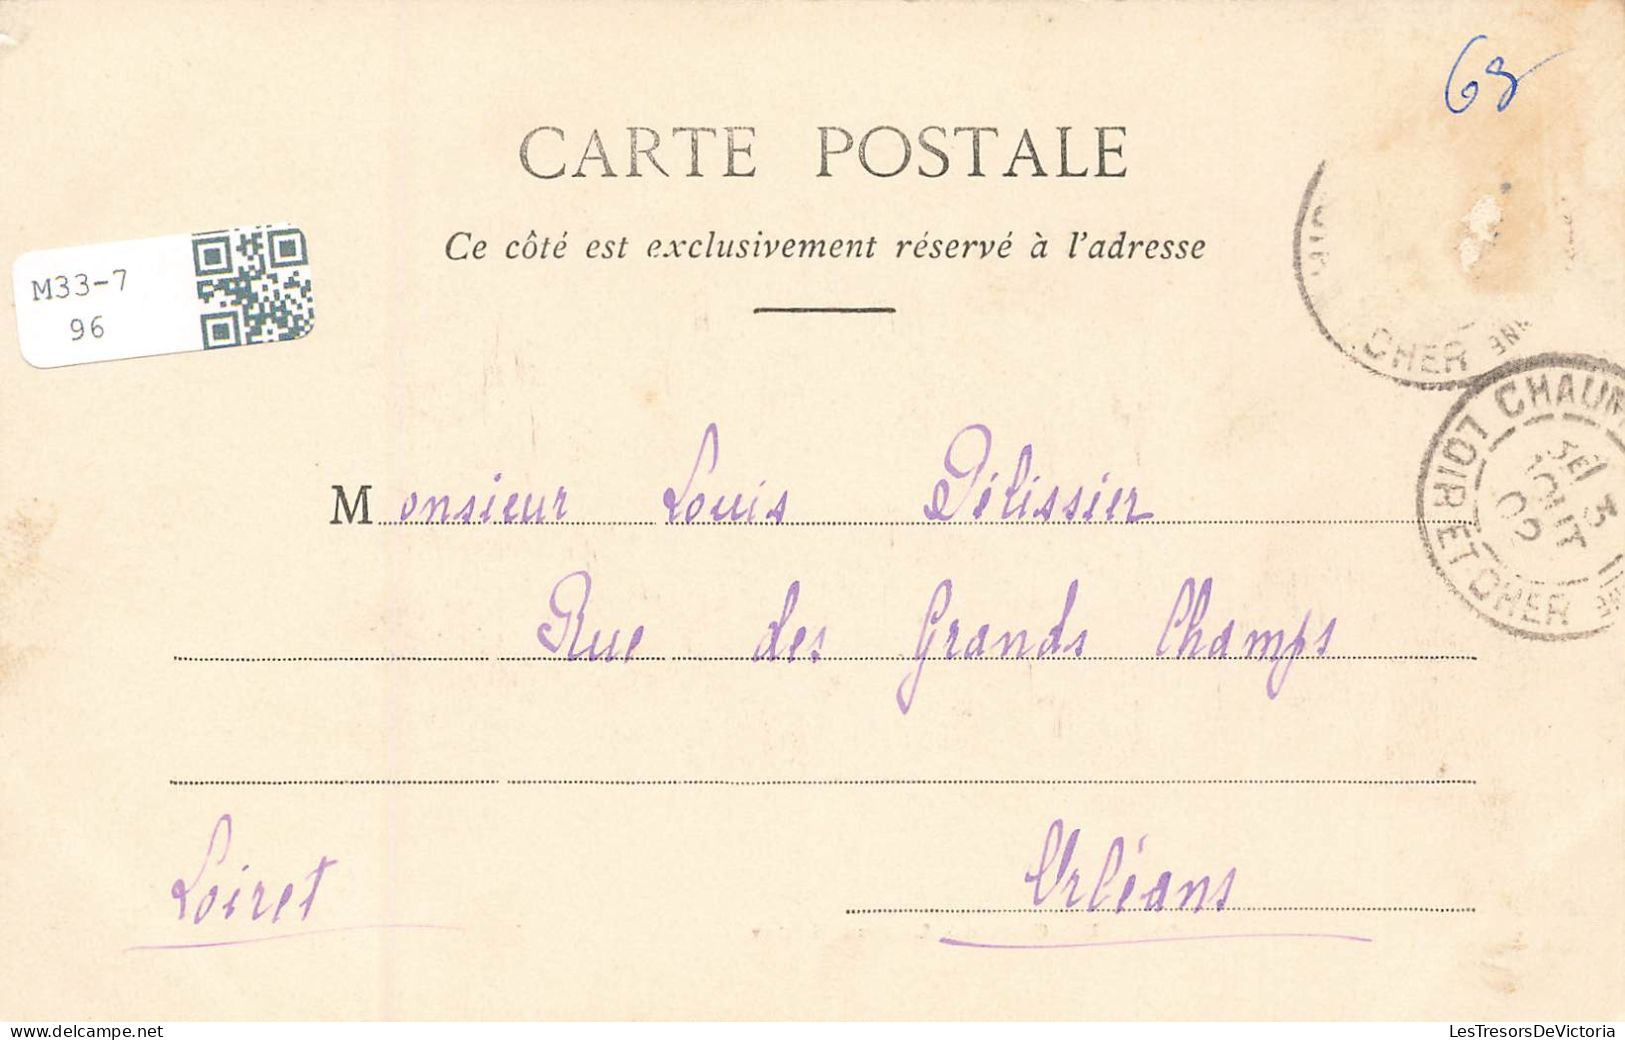 68
CARTE POSTALE
Ce côté est exclusivement réservé à l'adresse
M33-7
96
CHER
CHAUM
LOIR ET CHER
3
AOUT
02
Monsieur Louis Pélissier
Rue des Grands Champs
Loiret
Orléans
www.delcampe.net
LesTresorsDeVictoria